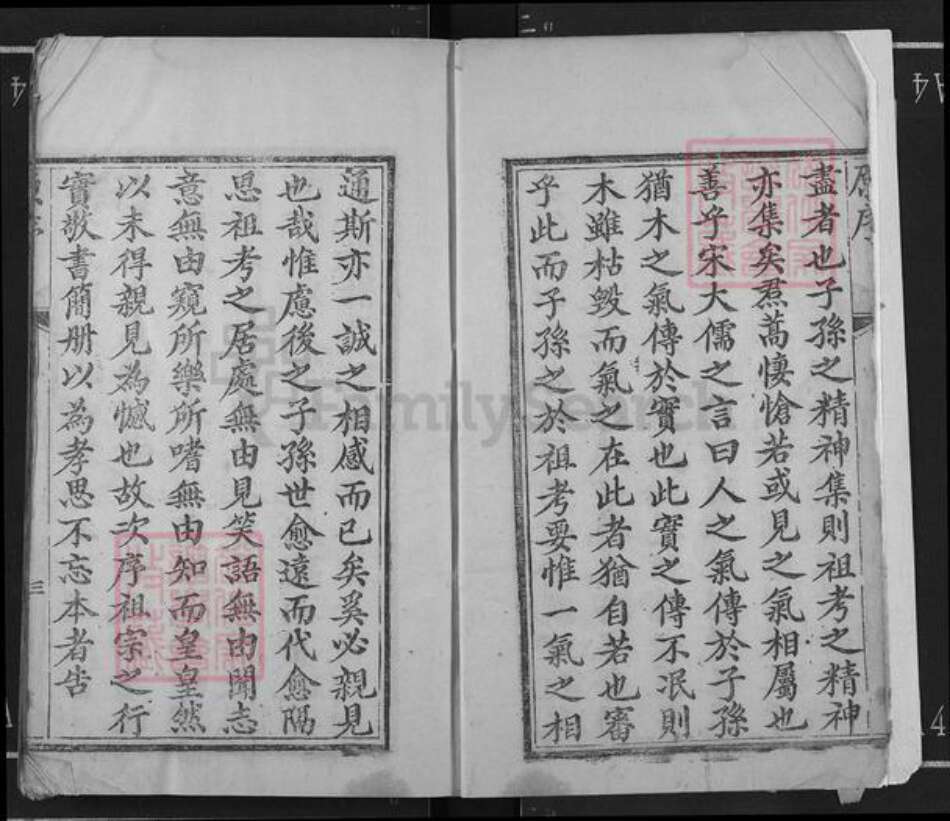 原序
盡者也子孫之精神集則祖考之精神
亦集矣焄蒿悽愴若或見之氣相屬也
善乎宋大儒之言曰人之氣傳於子孫
猶木之氣傳於實也此實之傳不泯則
木雖枯毀而氣之在此者猶自若也審
乎此而子孫之於祖考要惟一氣之相
通斯亦一誠之相感而已矣奚必親見
也哉惟慮後之子孫世愈遠而代愈隔
思祖考之居處無由見笑語無由聞志
意無由窺所樂所嗜無由知而皇皇然
以未得親見為憾也故次序祖宗之行
實敬書簡册以為孝思不忘本者告
三
FamilySearch